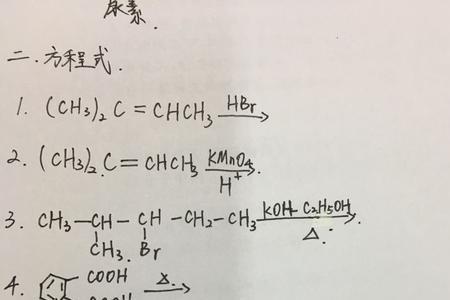 尿素.
二.方程式.
1. (CH₃)₂C=CHCH₃ HBr→
2. (CH₃)₂.C=CHCH₃ KMnO₄ H⁺→.
3. CH₃-CH-CH-CH₂-CH₃ KOH-C₂H₅OH △→.
CH₃. Br
4. COOH △→
COOH